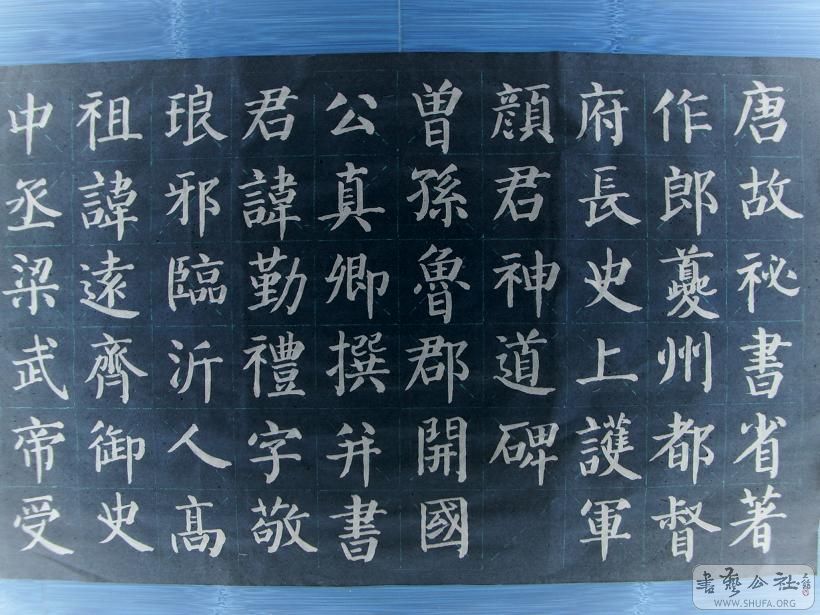 唐故祕書省著
作郎夔州都督
府長史上護軍
顔君神道碑
曽孫魯郡開國
公真卿撰并書
君諱勤禮字敬
琅邪臨沂人髙
祖諱遠齊御史
中丞梁武帝受
書藝公社
WWW.SHUFA.ORG